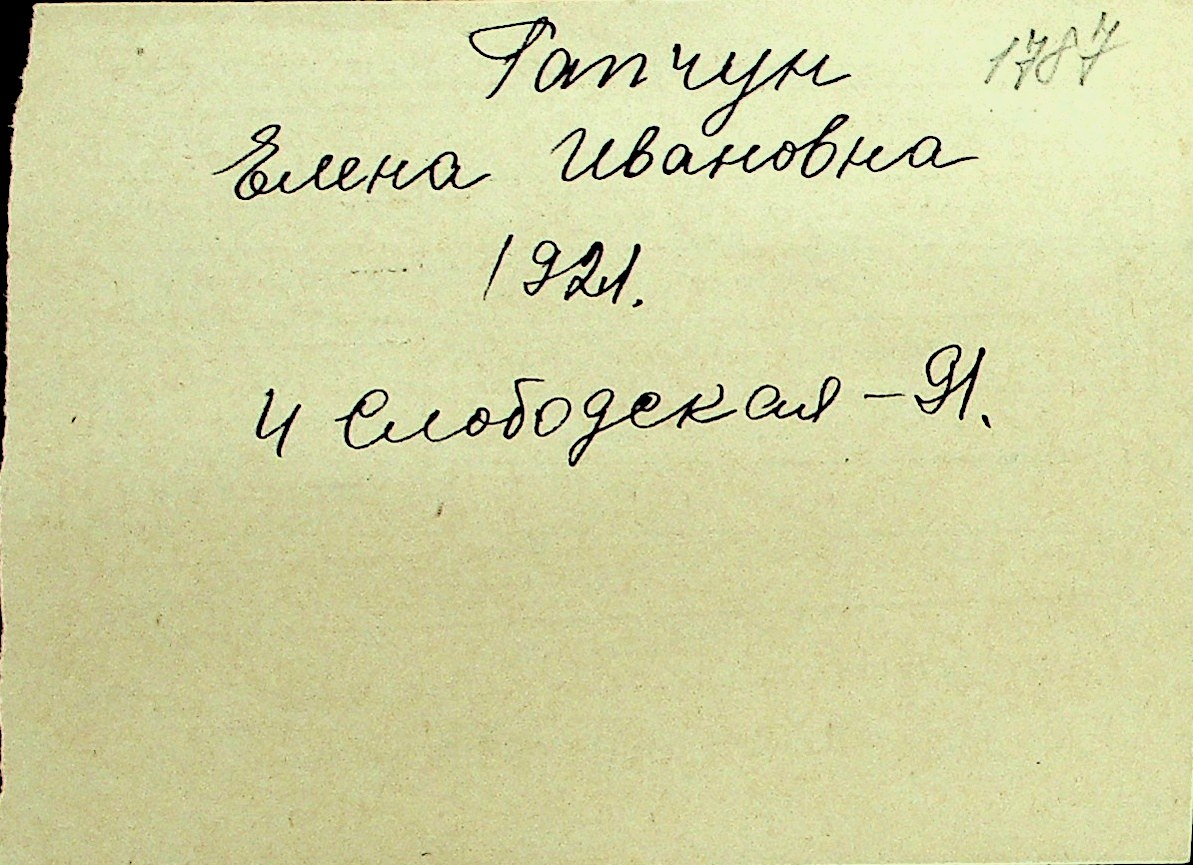 Гапчун 1787
Елена Ивановна
1921.
4 Слободская - 91.